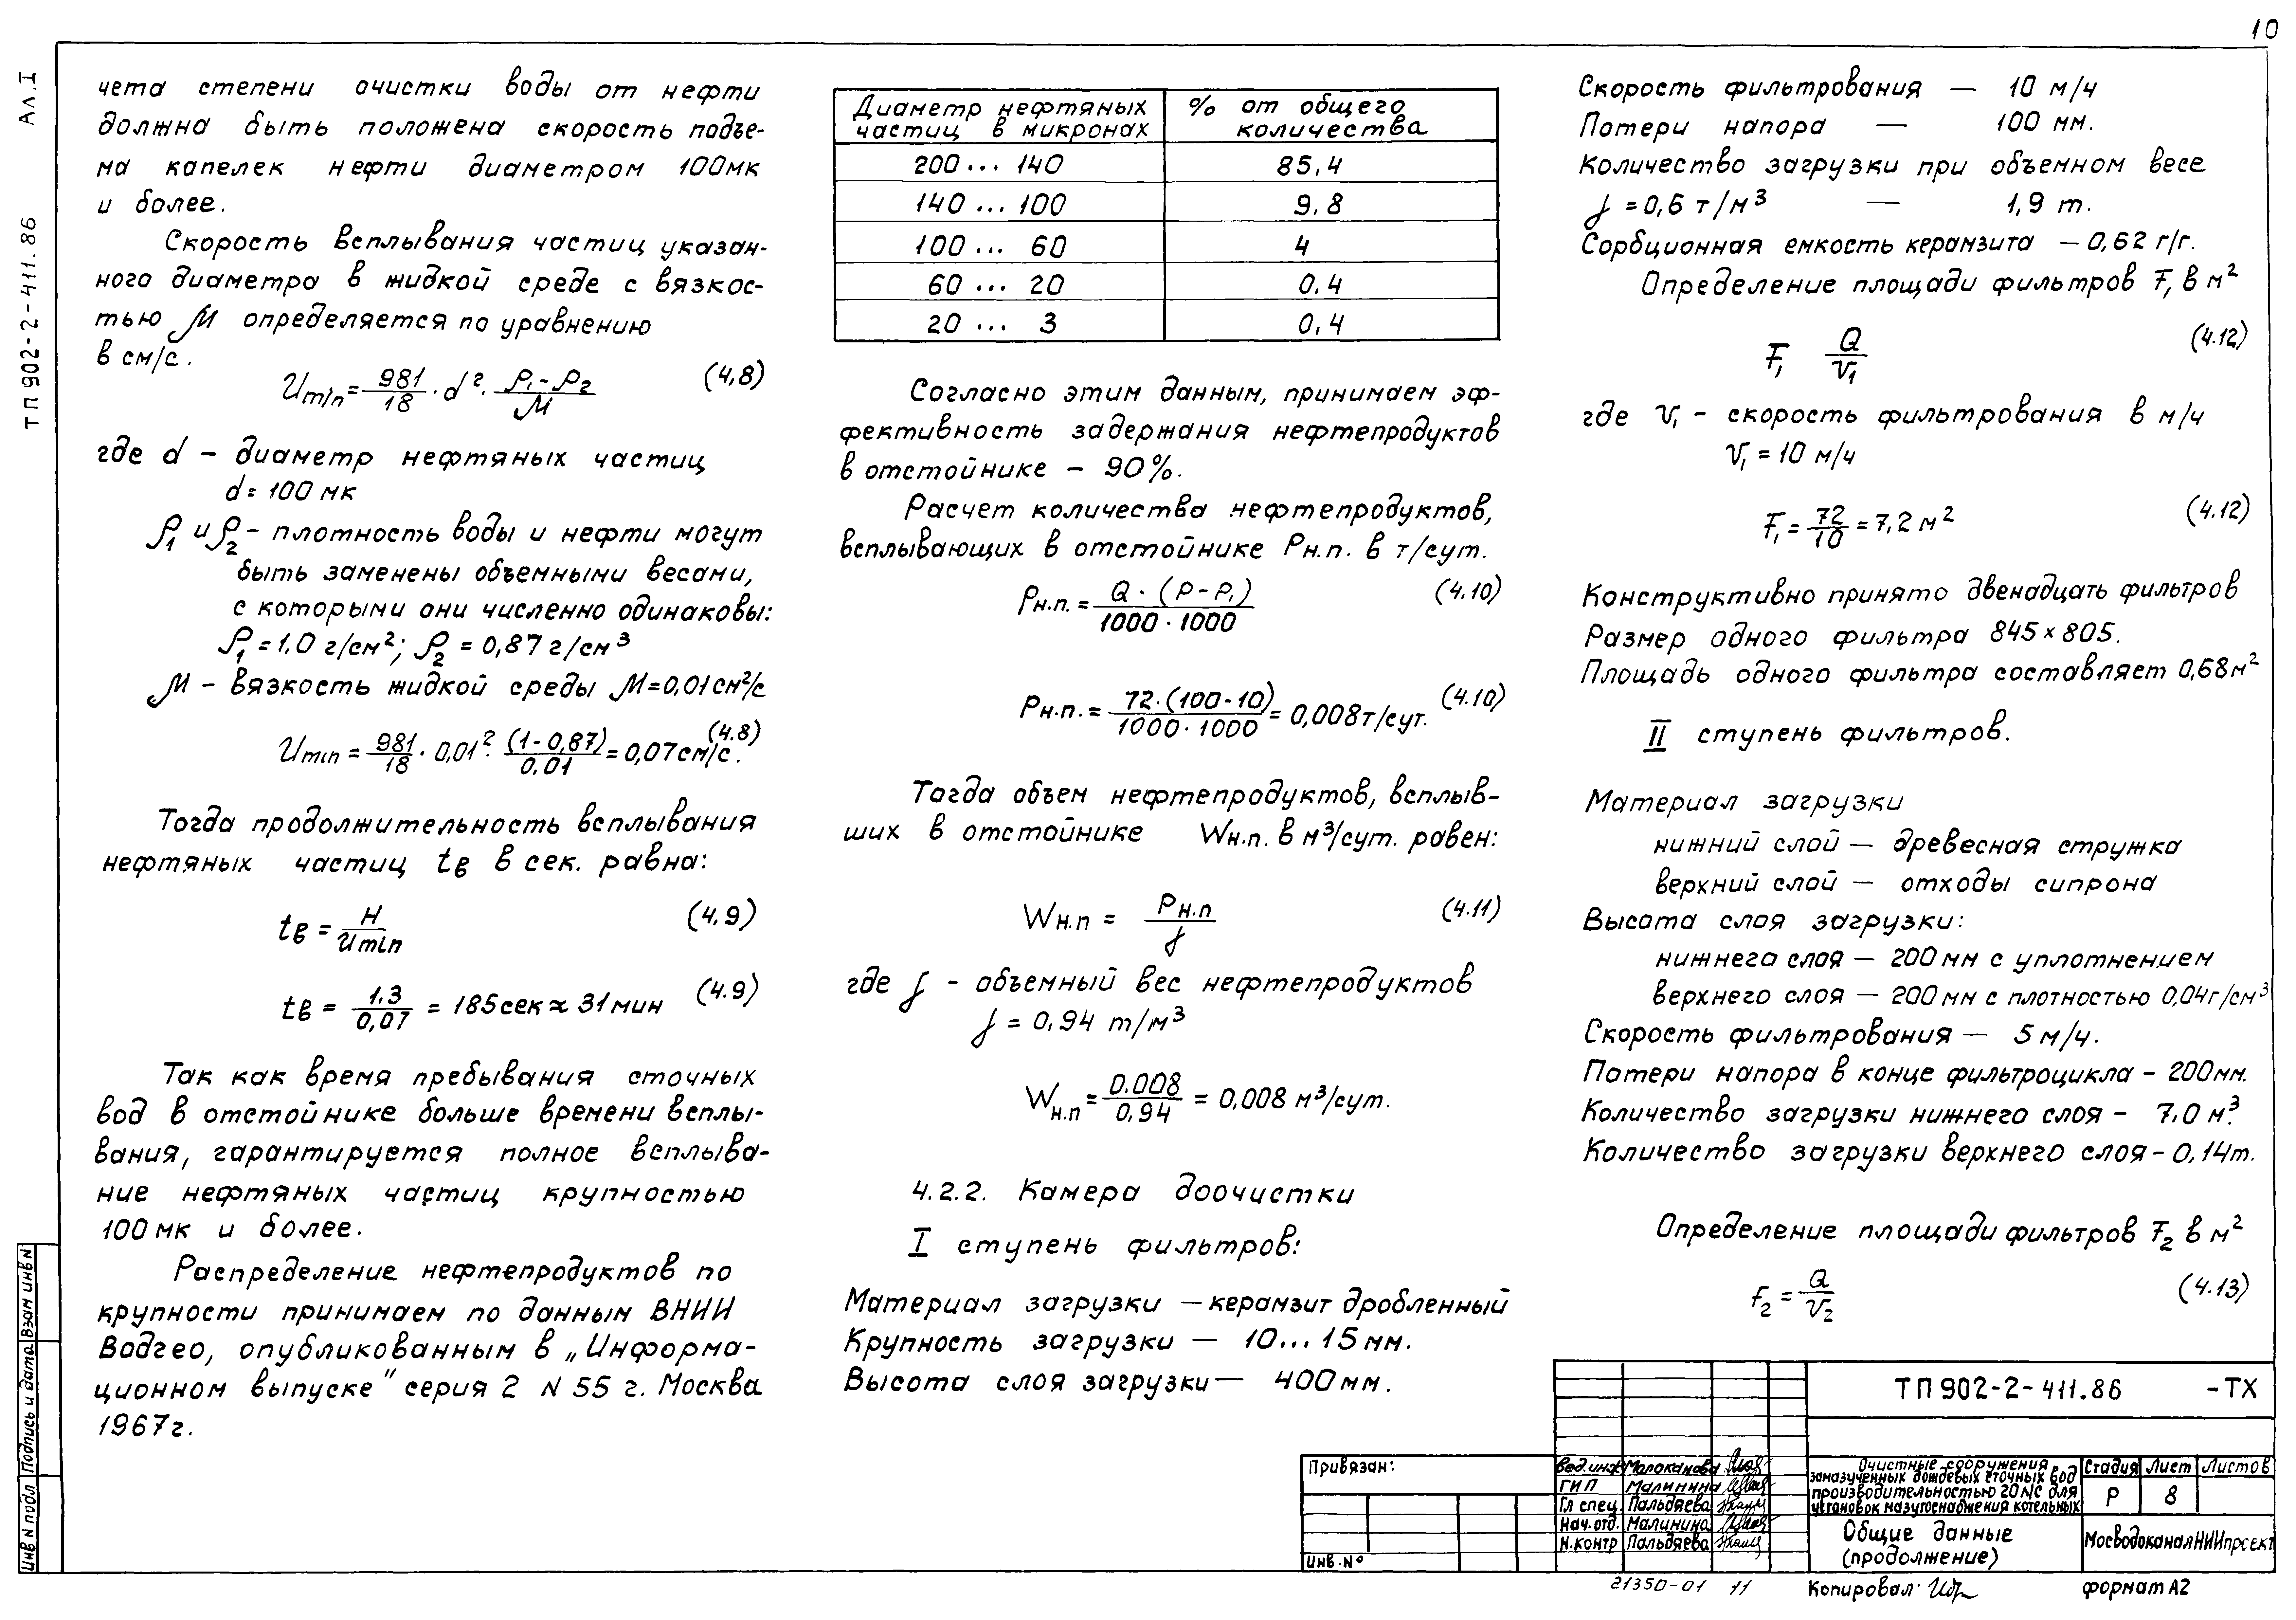 10
Ал. I
ТП 902-2-411.86
чета степени очистки воды от нефти
должна быть положена скорость подъе-
ма капелек нефти диаметром 100мк
и более.
Скорость всплывания частиц указан-
ного диаметра в жидкой среде с вязкос-
тью М определяется по уравнению
в см/с.
Umin = 981/18 · d² · (ρ1 - ρ2)/М (4,8)
где d – диаметр нефтяных частиц
d = 100 мк
ρ1 и ρ2 – плотность воды и нефти могут
быть заменены объемными весами,
с которыми они численно одинаковы:
ρ1 = 1,0 г/см²; ρ2 = 0,87 г/см³
М – вязкость жидкой среды М=0,01см²/с
Umin = 981/18 · 0,01² · (1-0,87)/0.01 = 0,07см/с. (4.8)
Тогда продолжительность всплывания
нефтяных частиц tв в сек. равна:
tв = H/Umin (4,9)
tв = 1.3/0,07 = 185сек ≈ 31мин (4.9)
Так как время пребывания сточных
вод в отстойнике больше времени всплы-
вания, гарантируется полное всплыва-
ние нефтяных частиц крупностью
100мк и более.
Распределение нефтепродуктов по
крупности принимаем по данным ВНИИ
Водгео, опубликованным в „Информа-
ционном выпуске" серия 2 N 55 г. Москва
1967г.
Диаметр нефтяных частиц в микронах | % от общего количества
200 ... 140 | 85,4
140 ... 100 | 9,8
100 ... 60 | 4
60 ... 20 | 0,4
20 ... 3 | 0,4
Согласно этим данным, принимаем эф-
фективность задержания нефтепродуктов
в отстойнике – 90%.
Расчет количества нефтепродуктов,
всплывающих в отстойнике Рн.п. в т/сут.
Рн.п. = Q · (Р – Р1)/1000 · 1000 (4.10)
Рн.п. = 72·(100-10)/1000·1000 = 0,008т/сут. (4.10)
Тогда объем нефтепродуктов, всплыв-
ших в отстойнике Wн.п. в м³/сут. равен:
Wн.п = Рн.п/γ (4.11)
где γ – объемный вес нефтепродуктов
γ = 0,94 т/м³
Wн.п = 0.008/0,94 = 0,008 м³/сут.
4.2.2. Камера доочистки
I ступень фильтров:
Материал загрузки – керамзит дробленный
Крупность загрузки – 10...15мм.
Высота слоя загрузки – 400мм.
Скорость фильтрования – 10 м/ч
Потери напора – 100 мм.
Количество загрузки при объемном весе
γ = 0,6 т/м³ – 1,9 т.
Сорбционная емкость керамзита – 0,62 г/г.
Определение площади фильтров F1 в м²
F1 Q/V1 (4.12)
где V1 – скорость фильтрования в м/ч
V1 = 10 м/ч
F1 = 72/10 = 7,2 м² (4.12)
Конструктивно принято двенадцать фильтров
Размер одного фильтра 845×805.
Площадь одного фильтра составляет 0,68м²
II ступень фильтров.
Материал загрузки
нижний слой – древесная стружка
верхний слой – отходы сипрона
Высота слоя загрузки:
нижнего слоя – 200мм с уплотнением
верхнего слоя – 200мм с плотностью 0,04г/см³
Скорость фильтрования – 5 м/ч.
Потери напора в конце фильтроцикла – 200мм.
Количество загрузки нижнего слоя – 7.0 м³.
Количество загрузки верхнего слоя – 0,14т.
Определение площади фильтров F2 в м²
f2 = Q/V2 (4.13)
ТП 902-2-411.86 -ТХ
Привязан:
Инв.N°
Вед.инж Молоканова
ГИП Малинина
Гл спец. Пальдяева
Нач.отд. Малинина
Н.контр Пальдяева
Очистные сооружения
замазученных дождевых сточных вод
производительностью 20 л/с для
установок мазутоснабжения котельных
Стадия Лист Листов
Р 8
Общие данные
(продолжение)
МосводоканалНИИпроект
21350-01 11
Копировал:
формат А2
Инв N подл
Подпись и дата
Взам инв N